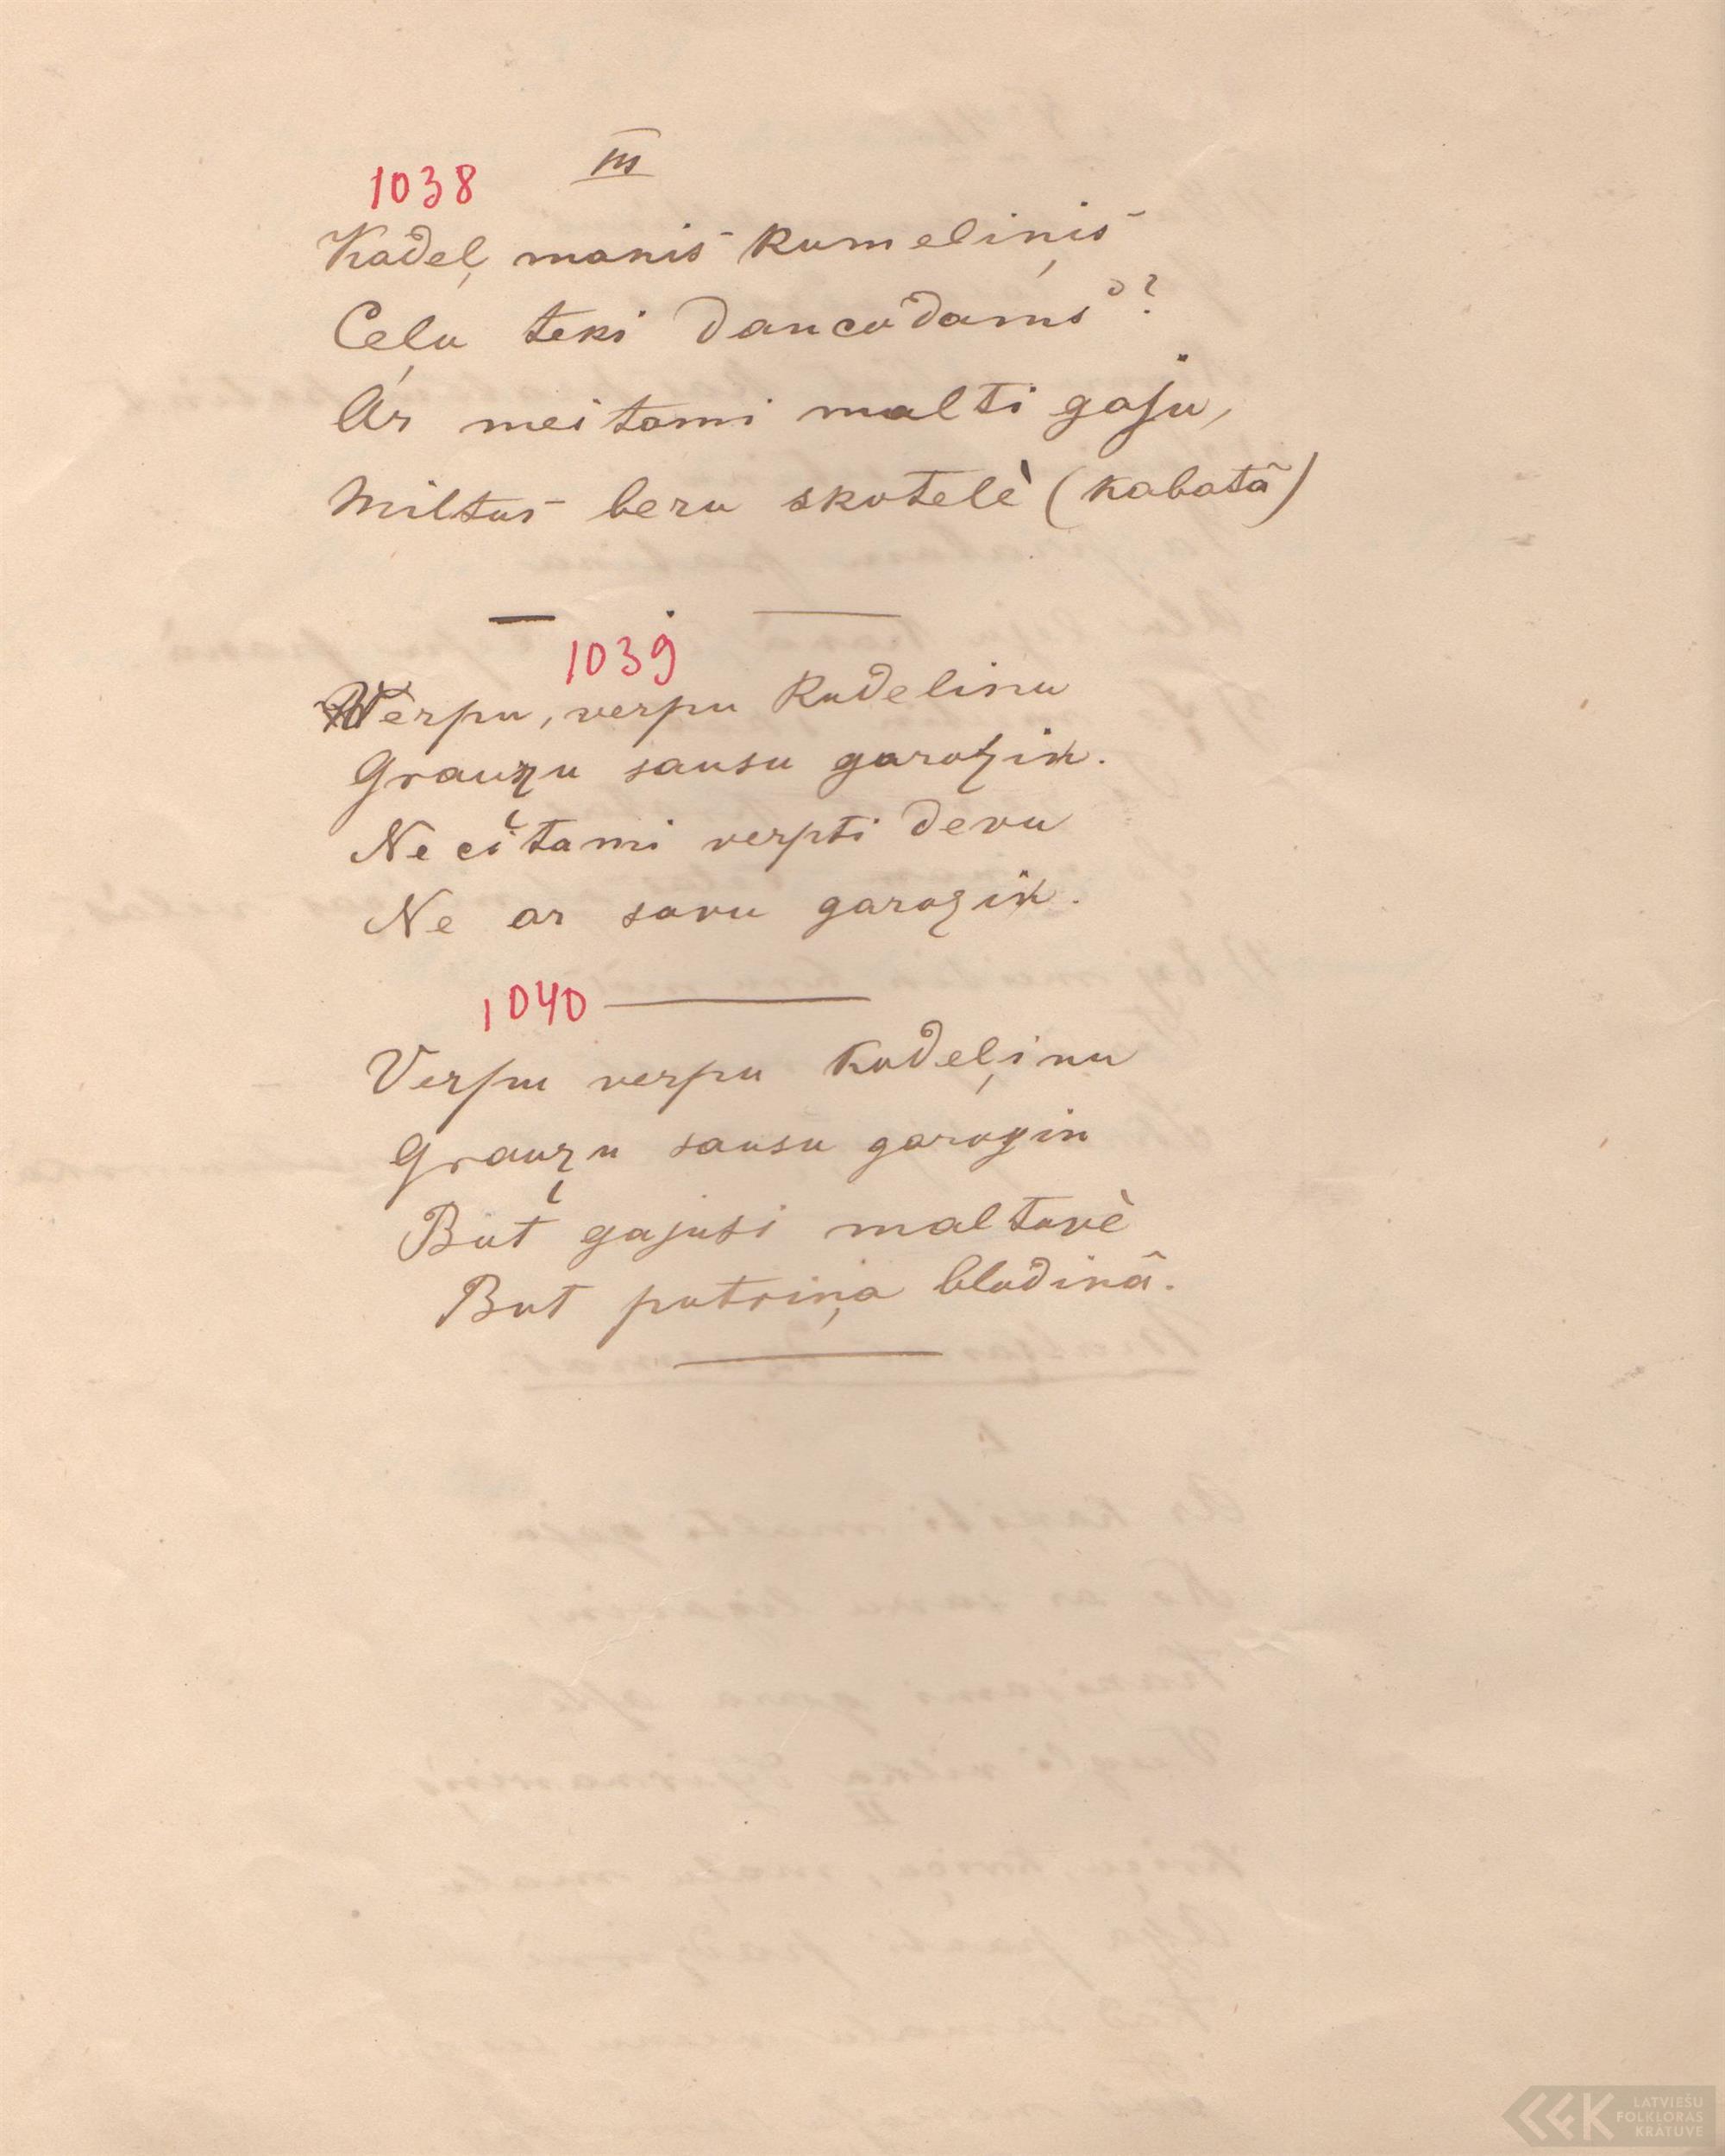 III
1038
Kadeļ manis kumeliņis
Ceļu teki dancodams?
Ar meitami malti gaju,
Miltus beru skutelè (kabatā)
1039
Werpu, verpu kudelinu
Grauzu sausu garozin.
Ne citami verpti devu
Ne ar savu garozin.
1040
Verpu verpu kudeļinu
Grauzu sausu garozin
But gajusi maltuvè
But putriņa bludinā.
LATVIEŠU
FOLKLORAS
KRĀTUVE